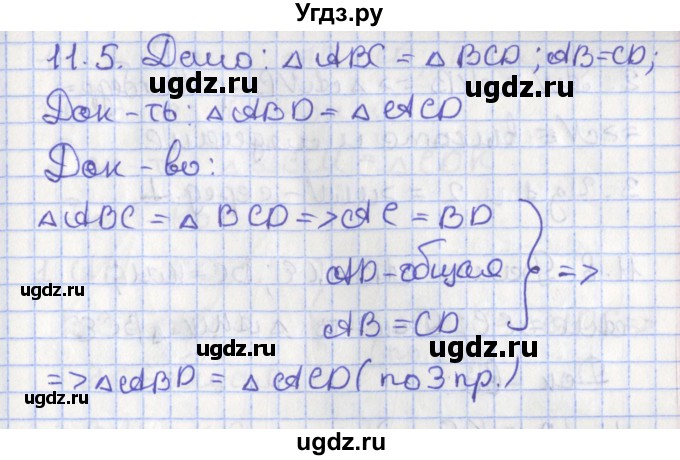 Угдз.ру
11.5. Дано: △ABC = △BCD; AB=CD;
ugdz.ru ugdz.ru
Док-ть: △ABD = △ACD
Док-во:
ugdz.ru
△ABC = △BCD => AC = BD
AD-общая =>
ugdz.ru
AB = CD
ugdz.ru
=> △ABD = △ACD (по 3 пр.)
ugdz.ru